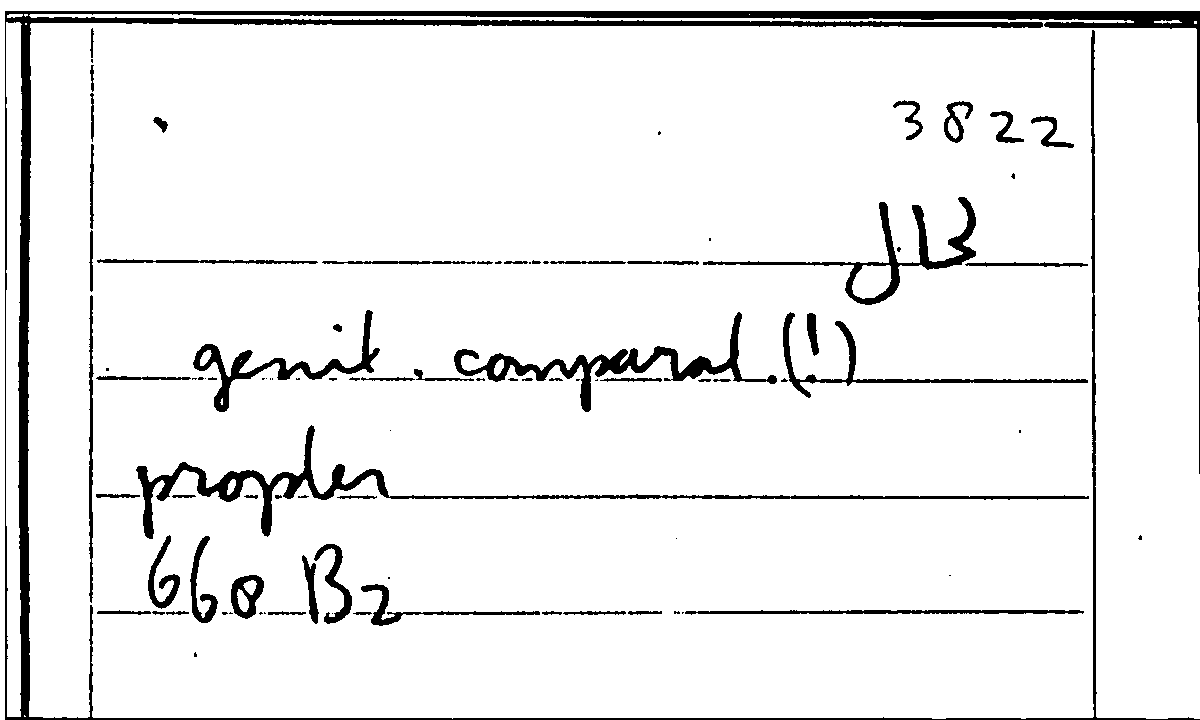 3822
JB
genit. comparat.(!)
propter
660 B2